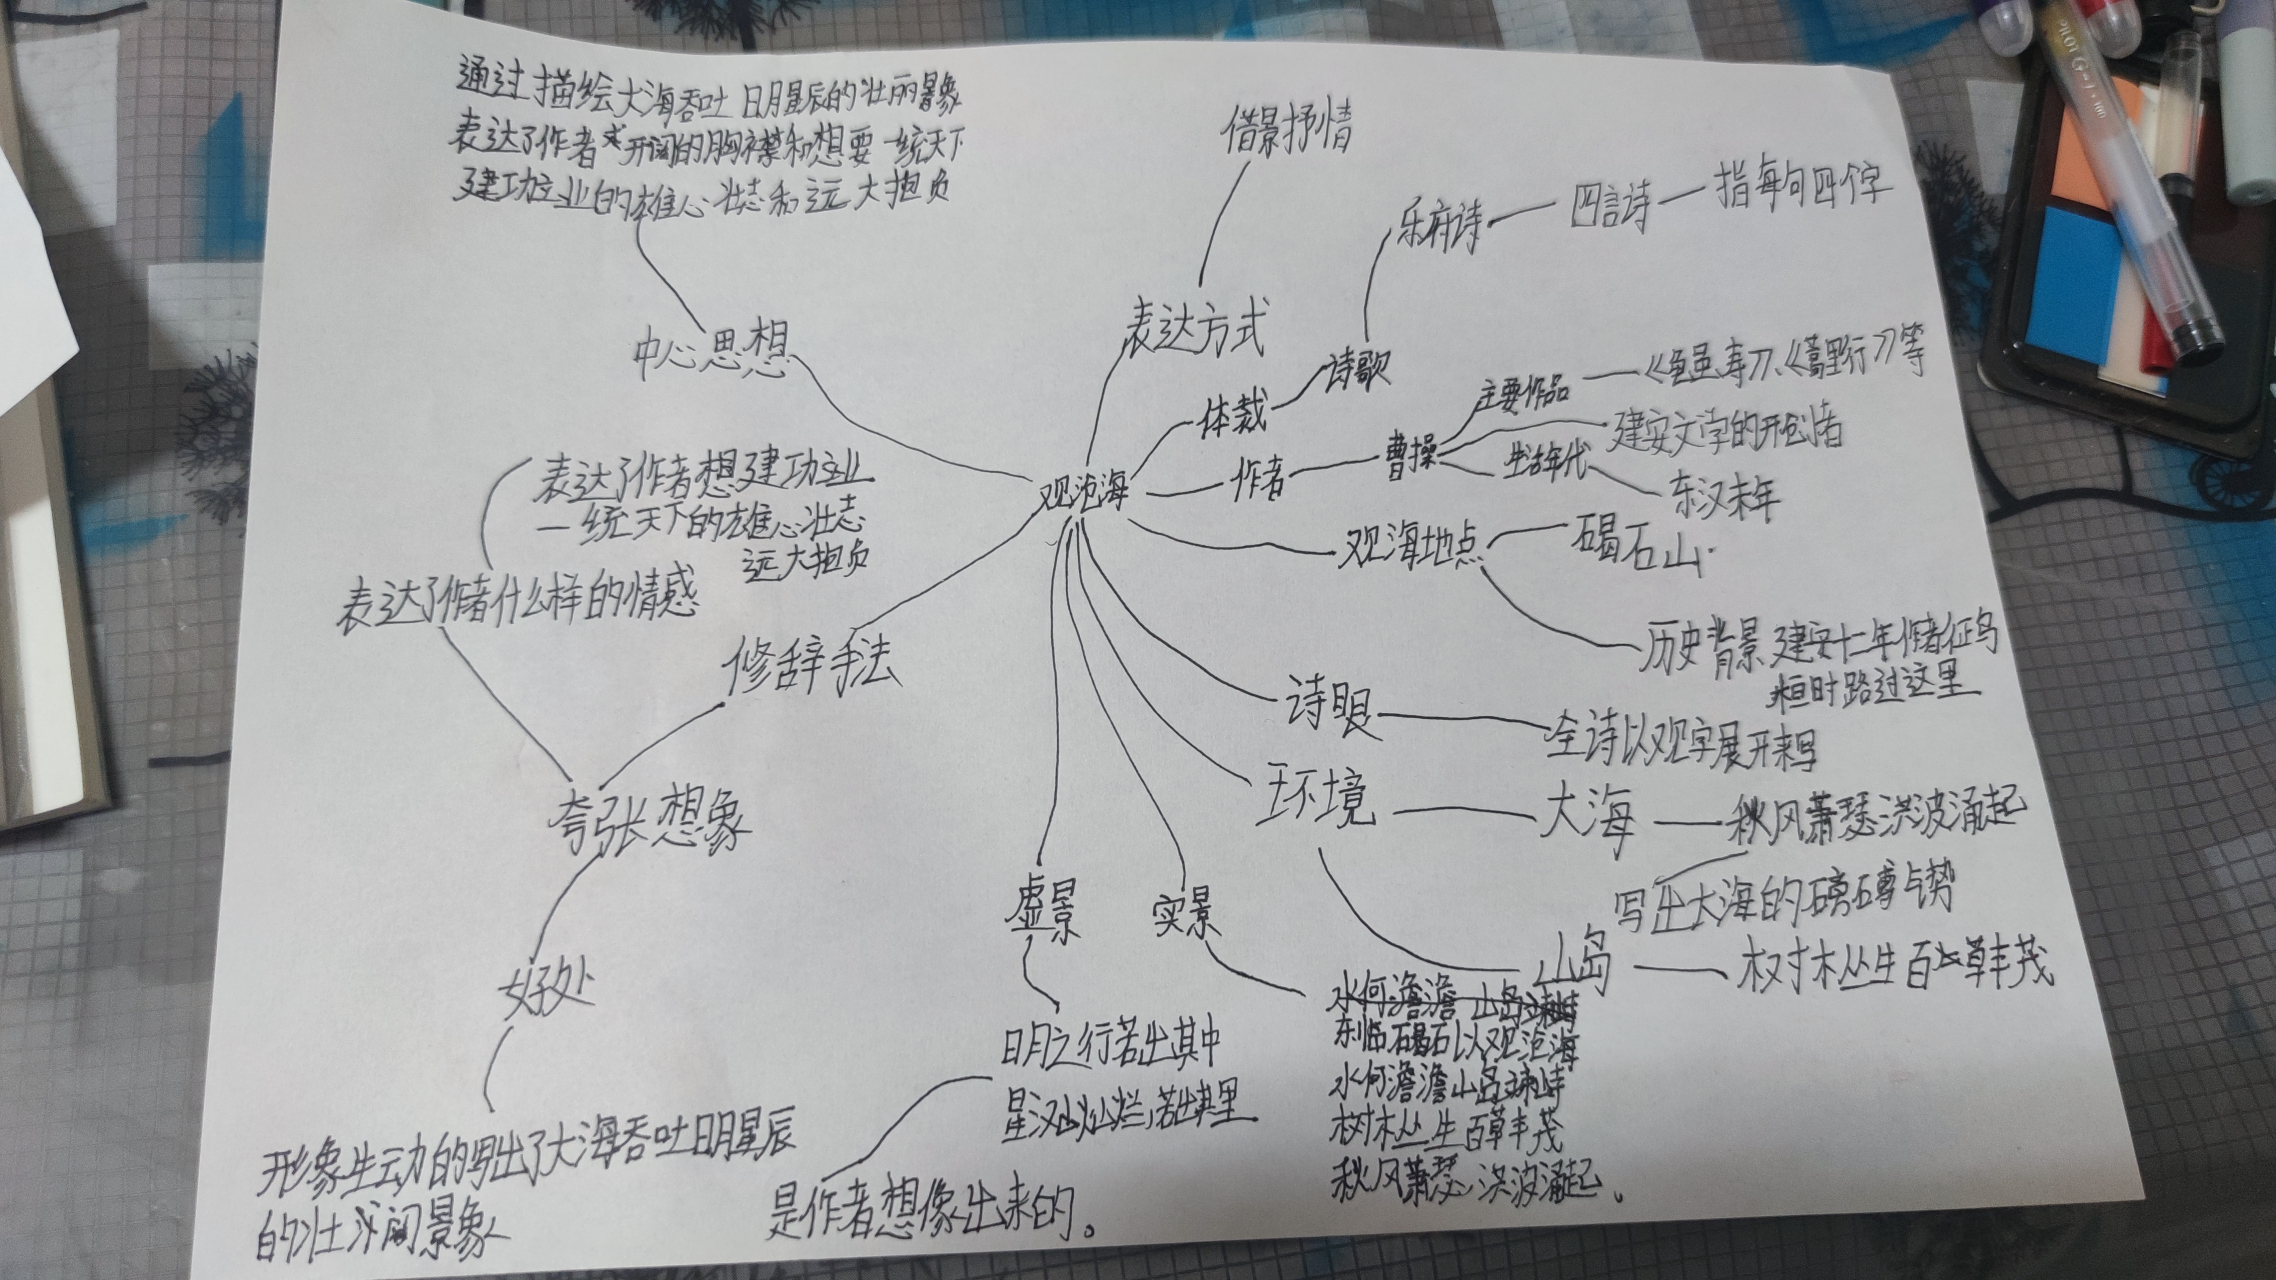 通过描绘大海吞吐日月星辰的壮丽景象
表达了作者开阔的胸襟和想要一统天下
建功立业的雄心壮志和远大抱负
中心思想
借景抒情
表达方式
乐府诗
四言诗
指每句四个字
诗歌
体裁
观沧海
作者
曹操
主要作品
《龟虽寿》、《蒿里行》等
建安文学的开创者
生活年代
东汉末年
观海地点
碣石山
历史背景 建安十二年作者征乌
桓时路过这里
诗眼
全诗以观字展开来写
环境
大海
秋风萧瑟洪波涌起
写出大海的磅礴气势
山岛
树木丛生百草丰茂
实景
水何澹澹 山岛竦峙
东临碣石以观沧海
水何澹澹山岛竦峙
树木丛生百草丰茂
秋风萧瑟洪波涌起。
虚景
日月之行若出其中
星汉灿烂,若出其里
是作者想像出来的。
修辞手法
夸张想象
表达了作者什么样的情感
表达了作者想建功立业
一统天下的雄心壮志
远大抱负
好处
形象生动的写出了大海吞吐日月星辰
的壮阔景象